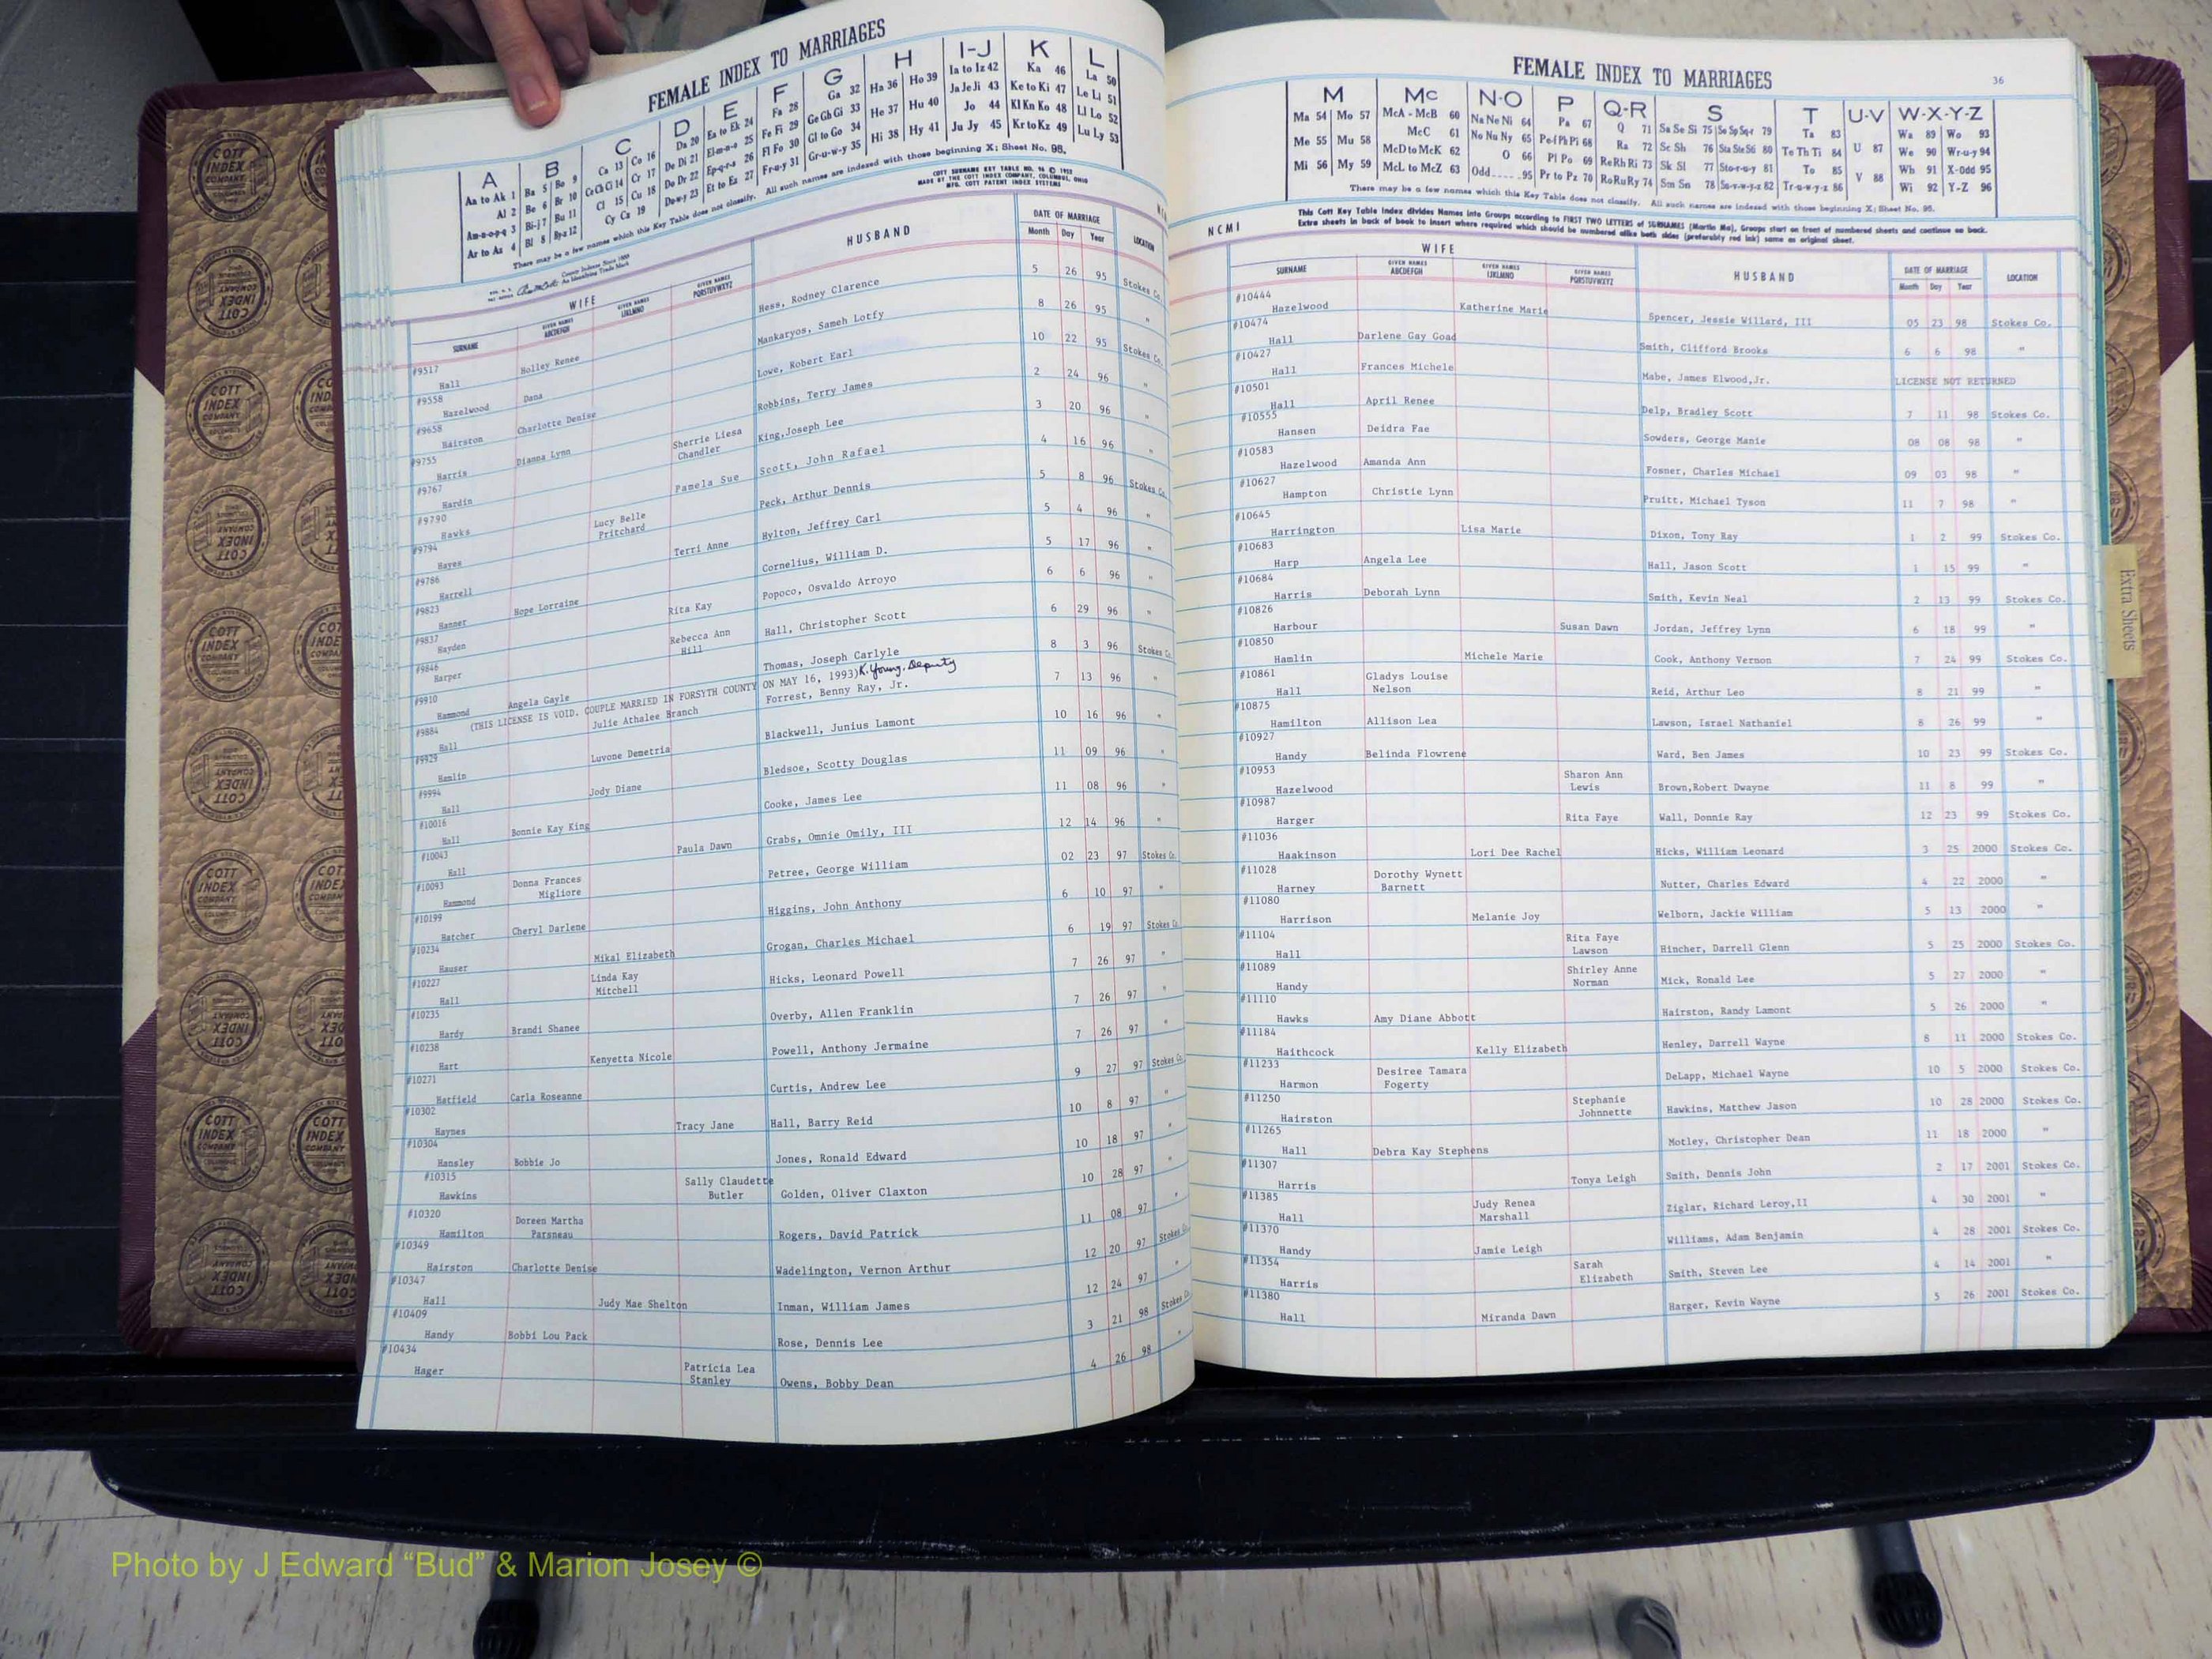 FEMALE INDEX TO MARRIAGES
A B C D E F G H I-J K L
Aa to Ak 1 Ba 5 Bo 9 Ca 13 Co 16 Da 20 Ea to Ek 24 Fa 28 Ga 32 Ha 36 Ho 39 Ia to Iz 42 Ka 46 La 50
Al 2 Be 6 Br 10 Ce Ch Ci 14 Cr 17 De Di 21 El-m-n-o 25 Fe Fi 29 Ge Gh Gi 33 He 37 Hu 40 Ja Je Ji 43 Ke to Ki 47 Le Li 51
Am-n-o-p-q 3 Bi-j 7 Bu 11 Cl 15 Cu 18 Do Dr 22 Ep-q-r-s 26 Fl Fo 30 Gl to Go 34 Hi 38 Hy 41 Jo 44 Kl Kn Ko 48 Ll Lo 52
Ar to Az 4 Bl 8 By-z 12 Cy Cz 19 Du-w-y 23 Et to Ez 27 Fr-u-y 31 Gr-u-w-y 35 Ju Jy 45 Kr to Kz 49 Lu Ly 53
There may be a few names which this Key Table does not classify. All such names are indexed with those beginning X; Sheet No. 95.
COTT SURNAME KEY TABLE NO. 96 © 1952
MADE BY THE COTT INDEX COMPANY, COLUMBUS, OHIO
MFG. COTT PATENT INDEX SYSTEMS
County Indexes Since 1888
An Identifying Trade Mark
WIFE HUSBAND DATE OF MARRIAGE LOCATION
SURNAME GIVEN NAMES ABCDEFGH GIVEN NAMES IJKLMNO GIVEN NAMES PQRSTUVWXYZ Month Day Year
#9517 Hall Holley Renee Hess, Rodney Clarence 5 26 95 Stokes Co.
#9558 Hazelwood Dana Mankaryos, Sameh Lotfy 8 26 95 "
#9658 Hairston Charlotte Denise Lowe, Robert Earl 10 22 95 Stokes Co.
#9755 Harris Dianna Lynn Robbins, Terry James 2 24 96 "
#9767 Hardin Sherrie Liesa Chandler King,Joseph Lee 3 20 96 "
#9790 Hawks Pamela Sue Scott, John Rafael 4 16 96 "
#9794 Hayes Lucy Belle Pritchard Peck, Arthur Dennis 5 8 96 Stokes Co.
#9786 Harrell Terri Anne Hylton, Jeffrey Carl 5 4 96 "
#9823 Hanner Hope Lorraine Cornelius, William D. 5 17 96 "
#9837 Hayden Rita Kay Popoco, Osvaldo Arroyo 6 6 96 "
#9846 Harper Rebecca Ann Hill Hall, Christopher Scott 6 29 96 "
#9910 Hammond Angela Gayle Thomas, Joseph Carlyle 8 3 96 Stokes Co.
(THIS LICENSE IS VOID. COUPLE MARRIED IN FORSYTH COUNTY ON MAY 16, 1993) K. Young, Deputy
#9884 Hall Julie Athalee Branch Forrest, Benny Ray, Jr. 7 13 96 "
#9929 Hamlin Luvone Demetria Blackwell, Junius Lamont 10 16 96 "
#9994 Hall Jody Diane Bledsoe, Scotty Douglas 11 09 96 "
#10016 Hall Bonnie Kay King Cooke, James Lee 11 08 96 "
#10043 Hall Paula Dawn Grabs, Omnie Omily, III 12 14 96 "
#10093 Hammond Donna Frances Migliore Petree, George William 02 23 97 Stokes Co.
#10199 Hatcher Cheryl Darlene Higgins, John Anthony 6 10 97 "
#10234 Hauser Mikal Elizabeth Grogan, Charles Michael 6 19 97 Stokes Co.
#10227 Hall Linda Kay Mitchell Hicks, Leonard Powell 7 26 97 "
#10235 Hardy Brandi Shanee Overby, Allen Franklin 7 26 97 "
#10238 Hart Kenyetta Nicole Powell, Anthony Jermaine 7 26 97 "
#10271 Hatfield Carla Roseanne Curtis, Andrew Lee 9 27 97 Stokes Co.
#10302 Haynes Tracy Jane Hall, Barry Reid 10 8 97 "
#10304 Hansley Bobbie Jo Jones, Ronald Edward 10 18 97 "
#10315 Hawkins Sally Claudette Butler Golden, Oliver Claxton 10 28 97 "
#10320 Hamilton Doreen Martha Parsneau Rogers, David Patrick 11 08 97 "
#10349 Hairston Charlotte Denise Wadelington, Vernon Arthur 12 20 97 Stokes Co.
#10347 Hall Judy Mae Shelton Inman, William James 12 24 97 "
#10409 Handy Bobbi Lou Pack Rose, Dennis Lee 3 21 98 Stokes Co.
#10434 Hager Patricia Lea Stanley Owens, Bobby Dean 4 26 98 "
FEMALE INDEX TO MARRIAGES 36
M Mc N-O P Q-R S T U-V W-X-Y-Z
Ma 54 Mo 57 McA - McB 60 Na Ne Ni 64 Pa 67 Q 71 Sa Se Si 75 So Sp Sq-r 79 Ta 83 U 87 Wa 89 Wo 93
Me 55 Mu 58 McC 61 No Nu Ny 65 Pe-f Ph Pi 68 Ra 72 Sc Sh 76 Sta Ste Sti 80 Te Th Ti 84 We 90 Wr-u-y 94
Mi 56 My 59 McD to McK 62 O 66 Pl Po 69 Re Rh Ri 73 Sk Sl 77 Sto-r-u-y 81 To 85 V 88 Wh 91 X-Odd 95
McL to McZ 63 Odd 95 Pr to Pz 70 Ro Ru Ry 74 Sm Sn 78 Su-v-w-y-z 82 Tr-u-w-y-z 86 Wi 92 Y-Z 96
There may be a few names which this Key Table does not classify. All such names are indexed with those beginning X; Sheet No. 95.
This Cott Key Table Index divides Names into Groups according to FIRST TWO LETTERS of SURNAMES (Martin Ma), Groups start on front of numbered sheets and continue on back.
Extra sheets in back of book to insert where required which should be numbered alike both sides (preferably red ink) same as original sheet.
NCMI
WIFE HUSBAND DATE OF MARRIAGE LOCATION
SURNAME GIVEN NAMES ABCDEFGH GIVEN NAMES IJKLMNO GIVEN NAMES PQRSTUVWXYZ Month Day Year
#10444 Hazelwood Katherine Marie Spencer, Jessie Willard, III 05 23 98 Stokes Co.
#10474 Hall Darlene Gay Goad Smith, Clifford Brooks 6 6 98 "
#10427 Hall Frances Michele Mabe, James Elwood,Jr. LICENSE NOT RETURNED
#10501 Hall April Renee Delp, Bradley Scott 7 11 98 Stokes Co.
#10555 Hansen Deidra Fae Sowders, George Manie 08 08 98 "
#10583 Hazelwood Amanda Ann Fosner, Charles Michael 09 03 98 "
#10627 Hampton Christie Lynn Pruitt, Michael Tyson 11 7 98 "
#10645 Harrington Lisa Marie Dixon, Tony Ray 1 2 99 Stokes Co.
#10683 Harp Angela Lee Hall, Jason Scott 1 15 99 "
#10684 Harris Deborah Lynn Smith, Kevin Neal 2 13 99 Stokes Co.
#10826 Harbour Susan Dawn Jordan, Jeffrey Lynn 6 18 99 "
#10850 Hamlin Michele Marie Cook, Anthony Vernon 7 24 99 Stokes Co.
#10861 Hall Gladys Louise Nelson Reid, Arthur Leo 8 21 99 "
#10875 Hamilton Allison Lea Lawson, Israel Nathaniel 8 26 99 "
#10927 Handy Belinda Flowrene Ward, Ben James 10 23 99 Stokes Co.
#10953 Hazelwood Sharon Ann Lewis Brown,Robert Dwayne 11 8 99 "
#10987 Harger Rita Faye Wall, Donnie Ray 12 23 99 Stokes Co.
#11036 Haakinson Lori Dee Rachel Hicks, William Leonard 3 25 2000 Stokes Co.
#11028 Harney Dorothy Wynett Barnett Nutter, Charles Edward 4 22 2000 "
#11080 Harrison Melanie Joy Welborn, Jackie William 5 13 2000 "
#11104 Hall Rita Faye Lawson Hincher, Darrell Glenn 5 25 2000 Stokes Co.
#11089 Handy Shirley Anne Norman Mick, Ronald Lee 5 27 2000 "
#11110 Hawks Amy Diane Abbott Hairston, Randy Lamont 5 26 2000 "
#11184 Haithcock Kelly Elizabeth Henley, Darrell Wayne 8 11 2000 Stokes Co.
#11233 Harmon Desiree Tamara Fogerty DeLapp, Michael Wayne 10 5 2000 Stokes Co.
#11250 Hairston Stephanie Johnnette Hawkins, Matthew Jason 10 28 2000 Stokes Co.
#11265 Hall Debra Kay Stephens Motley, Christopher Dean 11 18 2000 "
#11307 Harris Tonya Leigh Smith, Dennis John 2 17 2001 Stokes Co.
#11385 Hall Judy Renea Marshall Ziglar, Richard Leroy,II 4 30 2001 "
#11370 Handy Jamie Leigh Williams, Adam Benjamin 4 28 2001 Stokes Co.
#11354 Harris Sarah Elizabeth Smith, Steven Lee 4 14 2001 "
#11380 Hall Miranda Dawn Harger, Kevin Wayne 5 26 2001 Stokes Co.
Extra Sheets
COTT INDEX COMPANY
Photo by J Edward “Bud” & Marion Josey ©